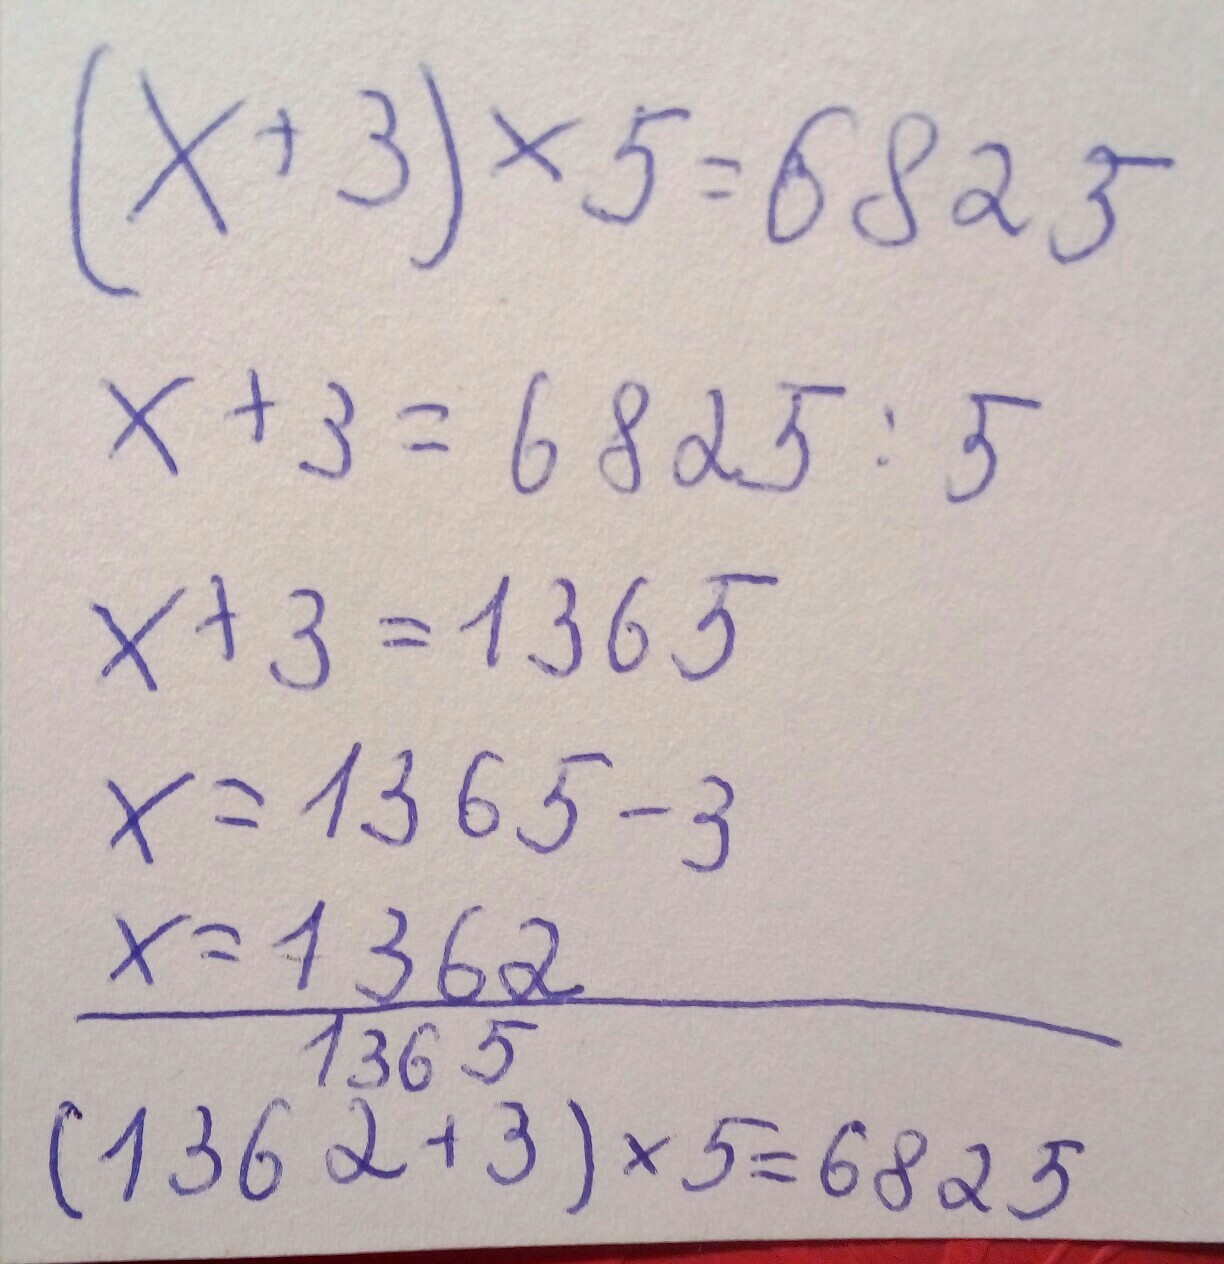 (x+3)×5=6825
x+3=6825:5
x+3=1365
x=1365-3
x=1362
1365
(1362+3)×5=6825